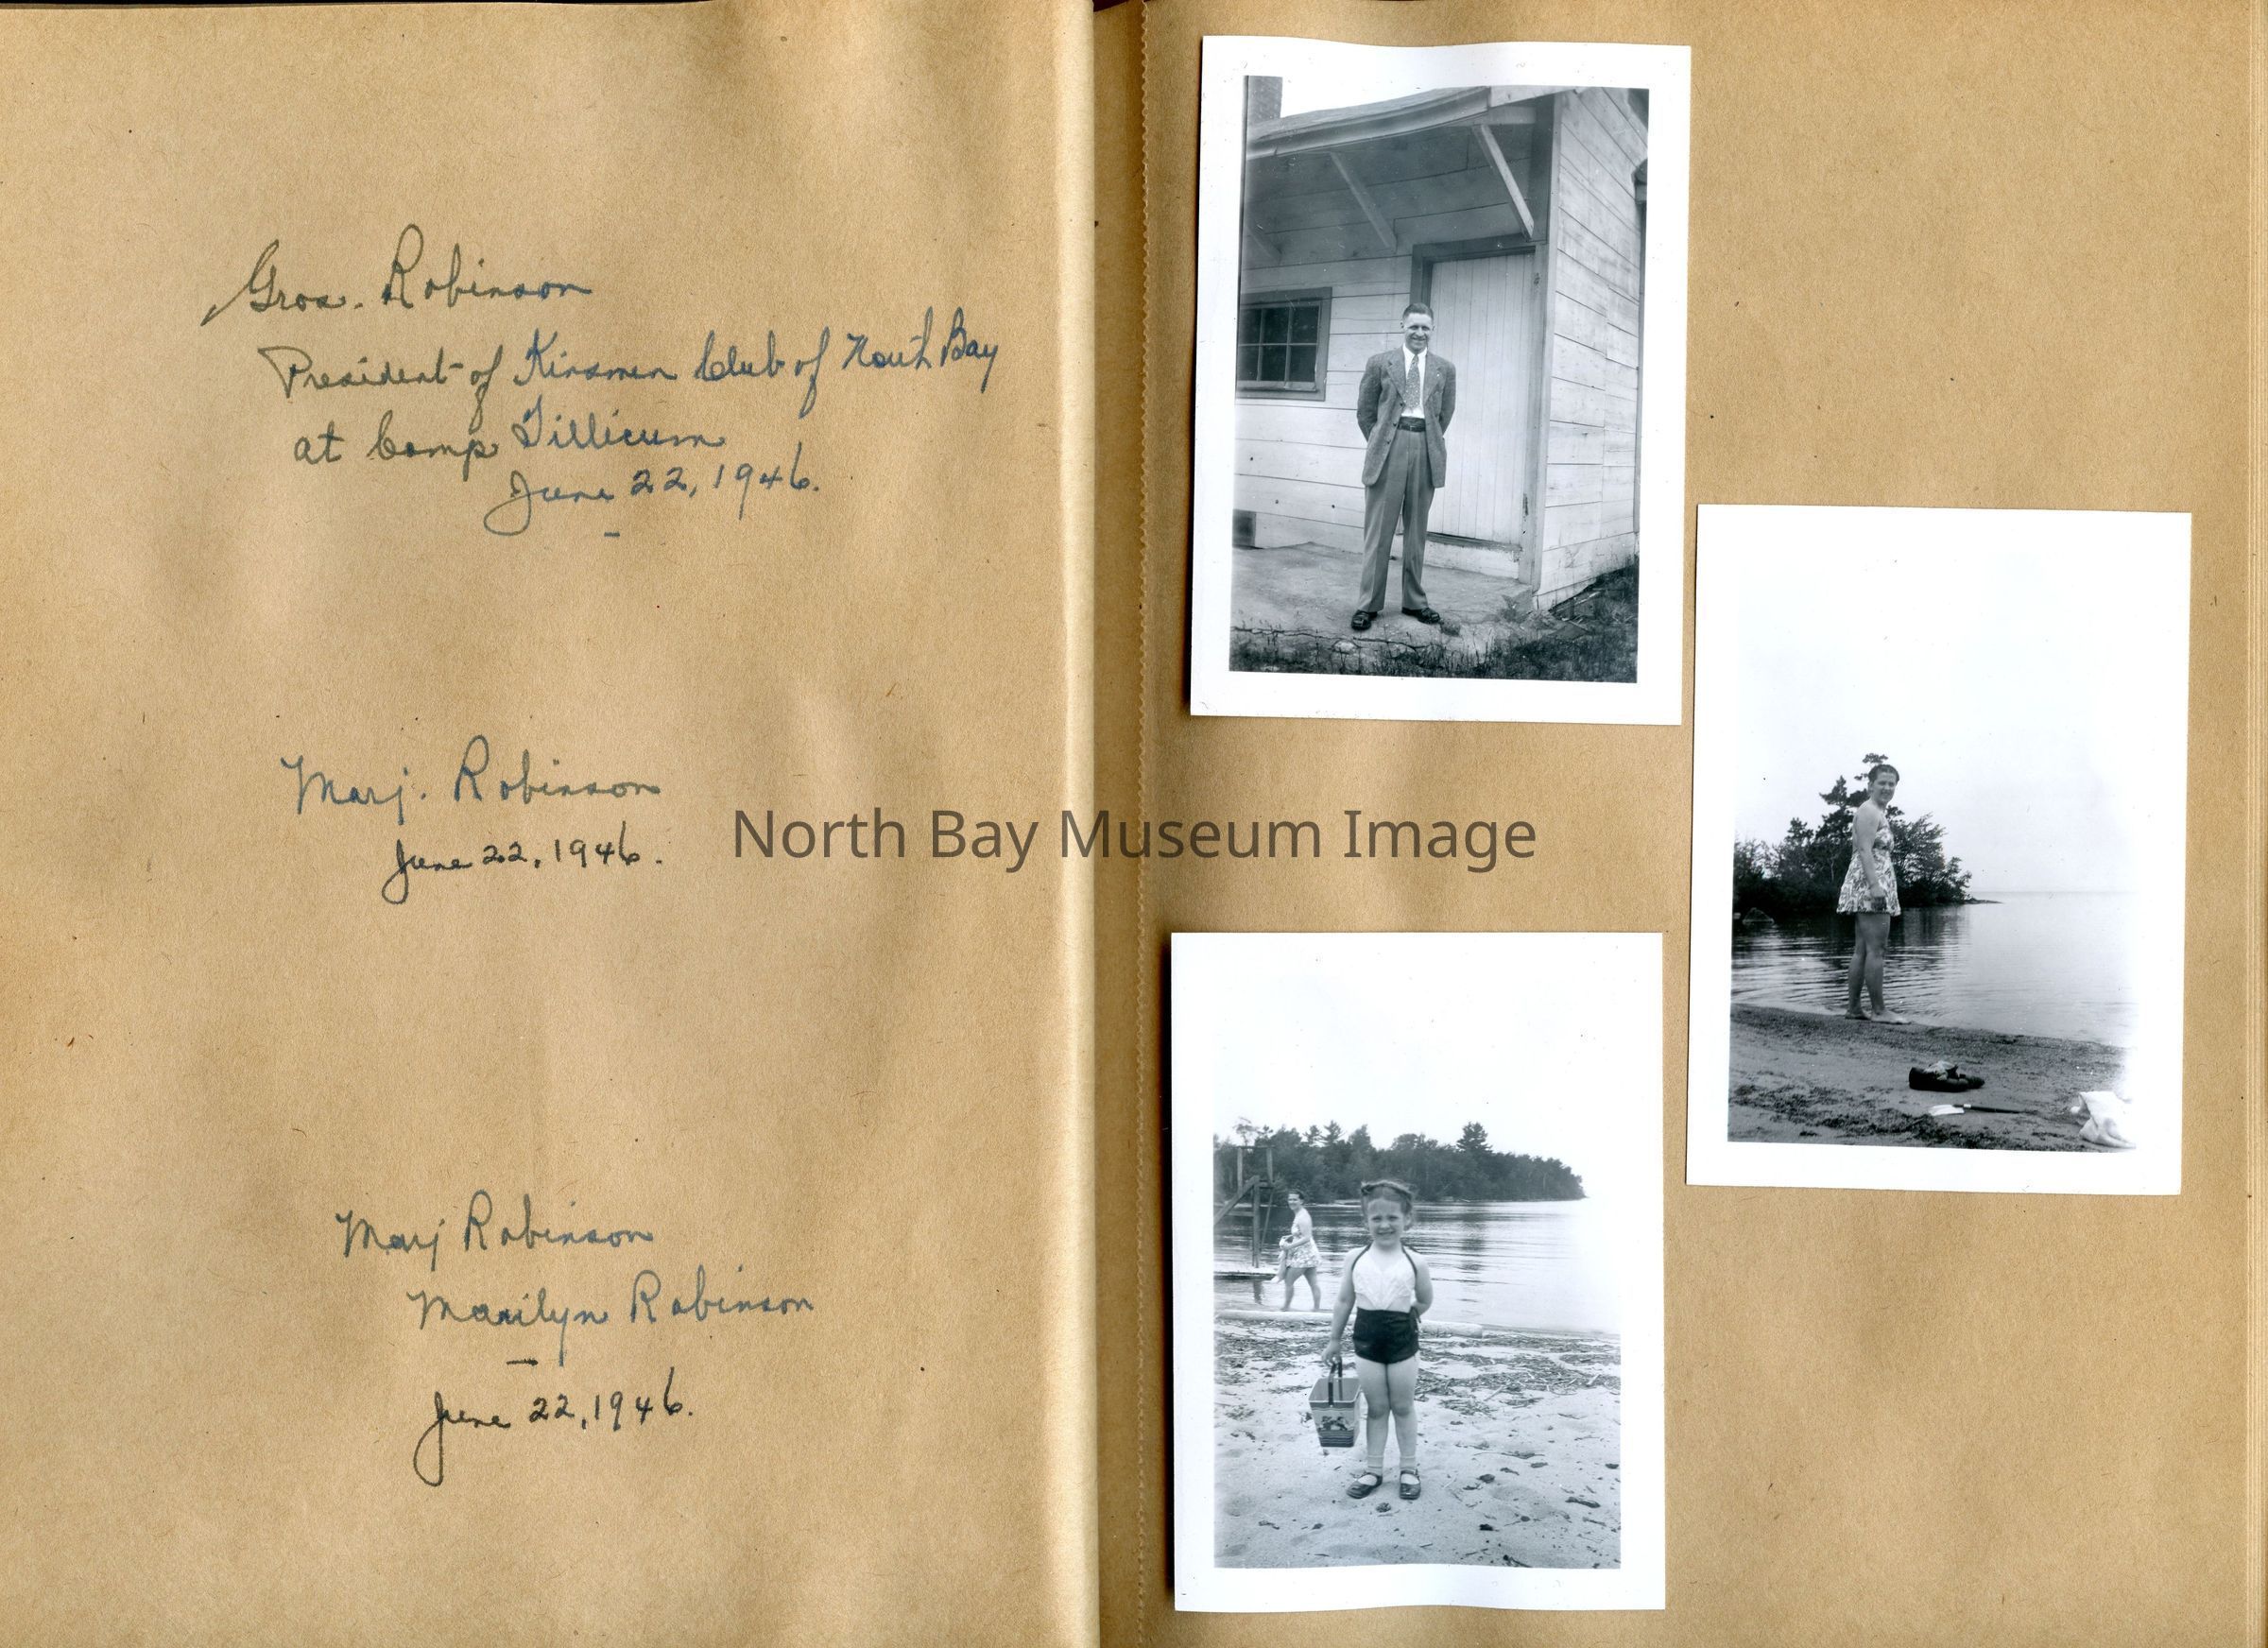 Gros. Robinson
President of Kinsmen Club of North Bay
at Camp Tillicum
June 22, 1946.
Marj. Robinson
June 22, 1946.
North Bay Museum Image
Marj Robinson
Marilyn Robinson
June 22, 1946.